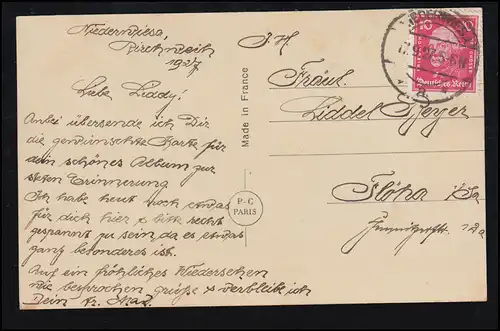 Niederwiesa,
Kirchweih
1927
Liebe Liddy!
Anbei übersende ich Dir
die gewünschte Karte für
dein schönes Album zur
steten Erinnerung
Ich habe heut noch etwas
für dich hier & bitte recht
gespannt zu sein, da es etwas
ganz besonderes ist.
Auf ein fröhliches Wiedersehen
wie besprochen grüße & verbleib ich
Dein
Made in France
P-C
PARIS
Deutsches Reich
Fräul.
Liddel
Flöha i/Sa
12a